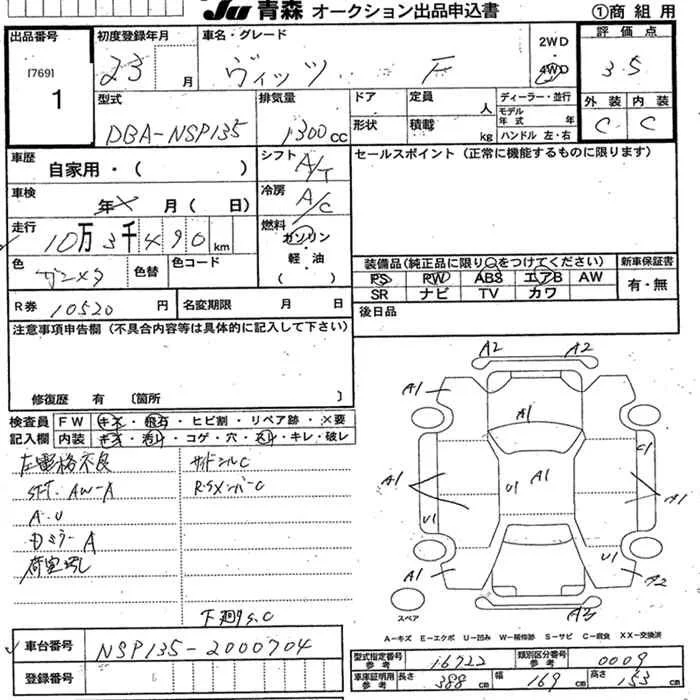 JU 青森 オークション出品申込書 ①商組用
出品番号 初度登録年月 車名・グレード 評価点
[769] 23 月 ヴィッツ F 2WD 4WD 3.5
1 型式 排気量 ドア 定員 人 ディーラー・並行 外装 内装
DBA-NSP135 1300cc 形状 積載 kg モデル年式 年式 ハンドル 左・右 C C
車歴 自家用・( ) シフト A/T セールスポイント (正常に機能するものに限ります)
車検 年 月 ( 日) 冷房 A/C
走行 10万3千490km 燃料 ガソリン
軽・油
( )
色 ガンメタ 色替 色コード 装備品(純正品に限り○をつけてください) 新車保証書
PS PW ABS エアB AW 有・無
R券 10520円 名変期限 月 日 SR ナビ TV カワ
注意事項申告欄 (不具合内容等は具体的に記入して下さい) 後日品
修復歴 有 〔箇所 〕
検査員 FW キズ・飛石・ヒビ割・リペア跡・×要
記入欄 内装 キズ・汚れ・コゲ・穴・スレ・キレ・破レ
左電格不良 サイドシルC
SFT. AW-A R・Sメンバー C
A・U
Dミラー A
下廻り S.C
A2 A2
A1 A1
A1
A1 U1 A1 C1 A1
U1 U1
A1 A2
スペア A2
A-キズ E-エクボ U-凹み W-補修跡 S-サビ C-腐食 XX-交換済
車台番号 NSP135-2000704
登録番号
型式指定番号 参考 16722 類別区分番号 参考 0009
車庫証明用 参考 長さ 388 cm 幅 169 cm 高さ 153 cm